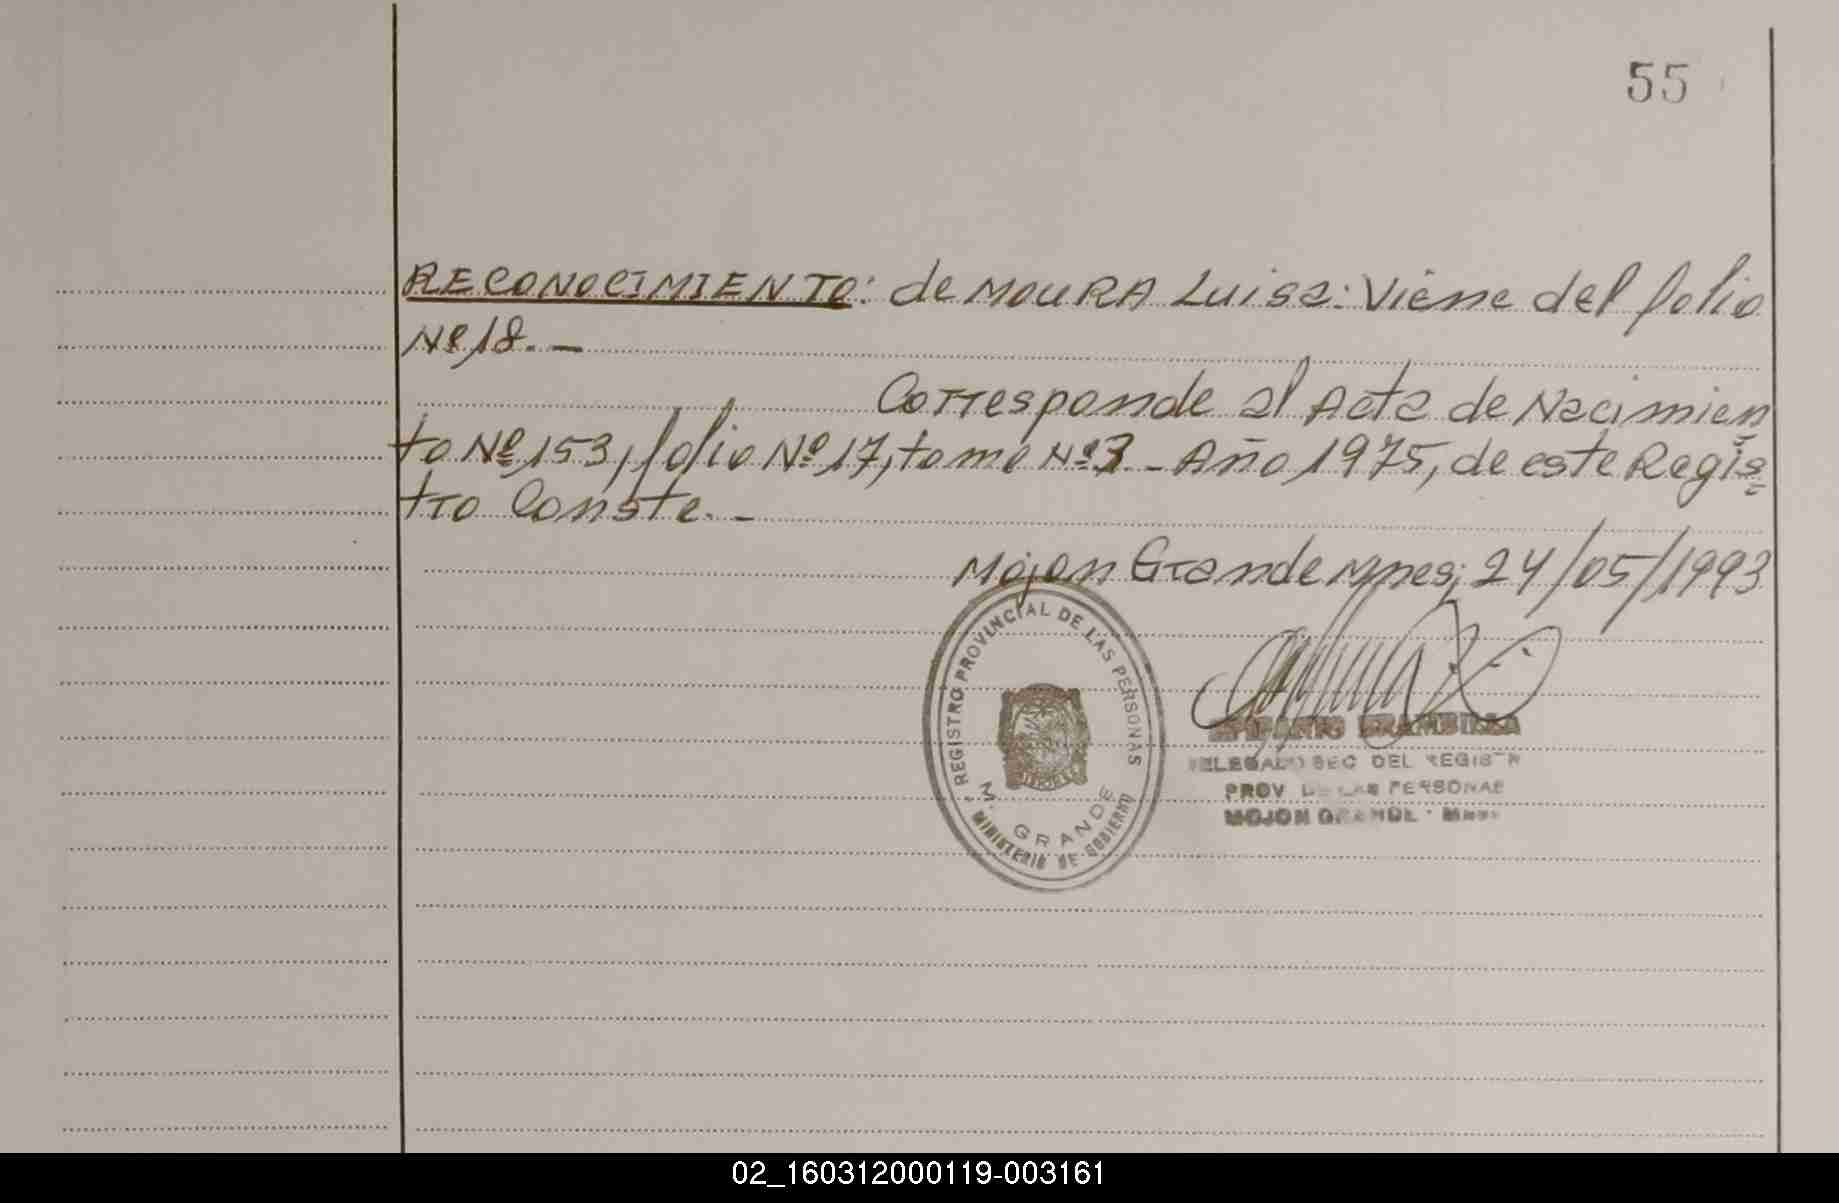 55
RECONOCIMIENTO: de MOURA Luisa: Viene del folio
Nº 18. —
Corresponde al Acta de Nacimien
to Nº 153, folio Nº 17, tomo Nº 3 - Año 1975, de este Regis-
tro Conste. -
Mojon Grande Mnes; 24/05/1993
REGISTRO PROVINCIAL DE LAS PERSONAS
M. GRANDE
MINISTERIO DE GOBIERNO
BRAMBILLA
DELEGADO SEC DEL REGISTR
PROV DE LAS PERSONAS
MOJON GRANDE - Mnes
02_160312000119-003161